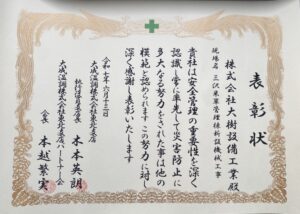 表彰状
現場名 三沢米軍管理棟新設機械工事
株式会社大樹設備工業殿
貴社は安全管理の重要性を深く
認識し常に率先して災害防止に
多大なる努力をされた事は他の
模範と認められますこの努力に対し
深く感謝し表彰いたします
令和七年六月十三日
大成温調株式会社東北支店
執行役員支店長 木本英朗
大成温調株式会社東北支店パートナー会
会長 本越繁実